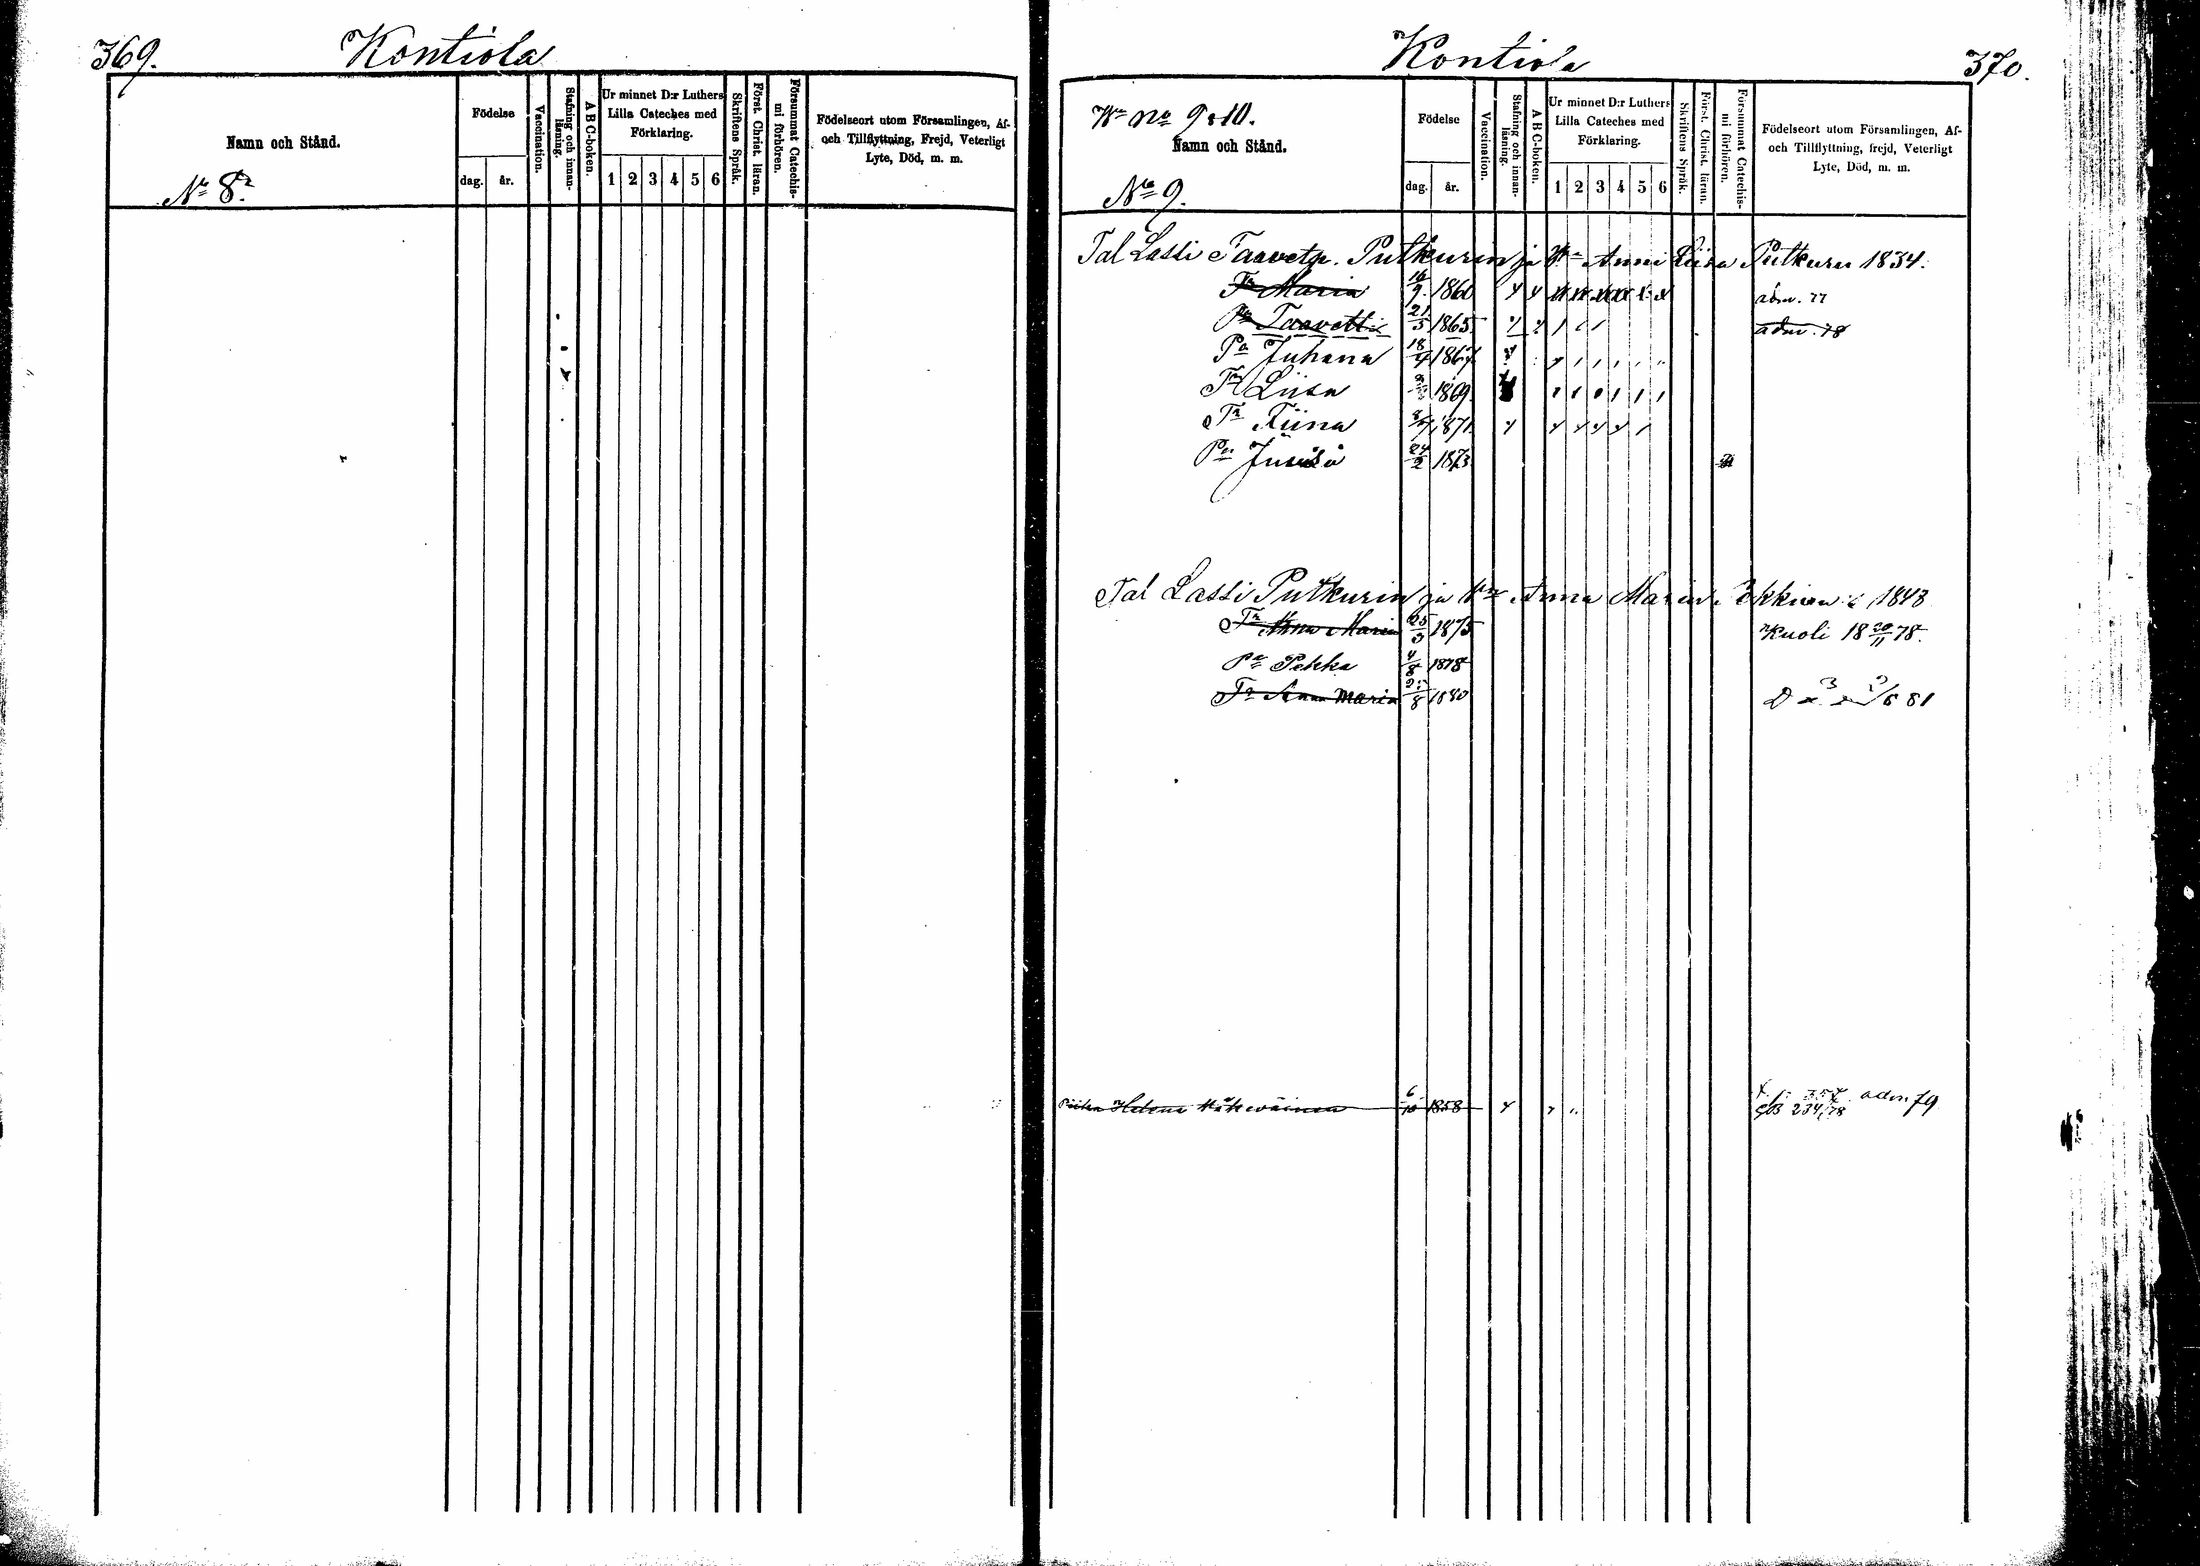 369.
Kontiola
Namn och Stånd.
No 8.
Födelse
dag.
år.
Vaccination.
Stafning och innan-läsning.
A B C-boken.
Ur minnet D:r Luthers
Lilla Cateches med
Förklaring.
1 2 3 4 5 6
Skriftens Språk.
Först. Christ. läran.
Försummat Catechis-
mi förhören.
Födelseort utom Församlingen, Af-
och Tillflyttning, Frejd, Veterligt
Lyte, Död, m. m.
Kontiola
370.
No 9 & 10.
Namn och Stånd.
No 9.
Födelse
dag.
år.
Vaccination.
Stafning och innan-
läsning.
A B C-boken.
Ur minnet D:r Luthers
Lilla Cateches med
Förklaring.
1 2 3 4 5 6
Skriftens Språk.
Först. Christ. läran.
Försummat Catechis-
mi förhören.
Födelseort utom Församlingen, Af-
och Tillflyttning, frejd, Veterligt
Lyte, Död, m. m.
Tal Lassi Taavetp. Putkurin ja Vmo Anni Liisa Putkuri 1834.
Tr Maria 16/9 1860 adm. 77
Pa Taavetti 21/5 1865 adm. 78
Pa Juhana 18/4 1867
Tr Liisa 1869
Tr Tiina 1871
Pa 24/2 1873
Tal Lassi Putkurin ja Anna Maria 1843
Tr Anna Maria 25/3 1875 Kuoli 18 20/11 78.
Pa Pekka 4/8 1878
Tr Anna Maria 8 1880 81
Helena 6/10 1858 234/78 adm 79